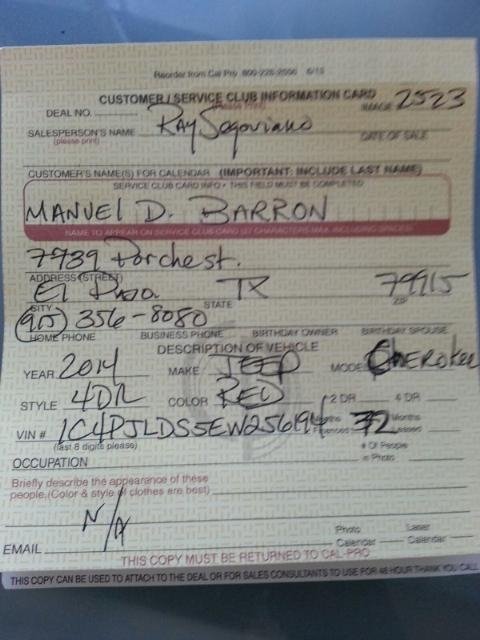 Reorder from Cal Pro 800-228-2606 6/13
CUSTOMER / SERVICE CLUB INFORMATION CARD
(please print)
DEAL NO. IMAGE 2523
SALESPERSON'S NAME Ray Segoviano DATE OF SALE
(please print)
CUSTOMER'S NAME(S) FOR CALENDAR (IMPORTANT: INCLUDE LAST NAME)
SERVICE CLUB CARD INFO • THIS FIELD MUST BE COMPLETED
MANUEL D. BARRON
NAME TO APPEAR ON SERVICE CLUB CARD (27 CHARACTERS MAX. INCLUDING SPACES)
7939 Porche st.
ADDRESS (STREET)
El Paso. TX 79915
CITY STATE ZIP
(915) 356-8080
HOME PHONE BUSINESS PHONE BIRTHDAY OWNER BIRTHDAY SPOUSE
DESCRIPTION OF VEHICLE
YEAR 2014 MAKE JEEP MODEL CHEROKEE
STYLE 4DR COLOR RED 2 DR 4 DR
VIN # 1C4PJLDS5EW256194 Months Financed 72 Months
(last 8 digits please)
OCCUPATION # Of People in Photo
Briefly describe the appearance of these
people. (Color & style of clothes are best)
N/A
Photo Calendar Laser Calendar
EMAIL
THIS COPY MUST BE RETURNED TO CAL-PRO
THIS COPY CAN BE USED TO ATTACH TO THE DEAL OR FOR SALES CONSULTANTS TO USE FOR 48 HOUR THANK YOU CALL